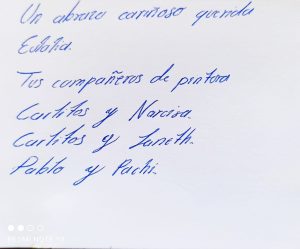 Un abrazo cariñoso querida
Eulalia.
Tus compañeros de pintura
Carlitos y Narcisa.
Carlitos y Janeth.
Pablo y Pachi.